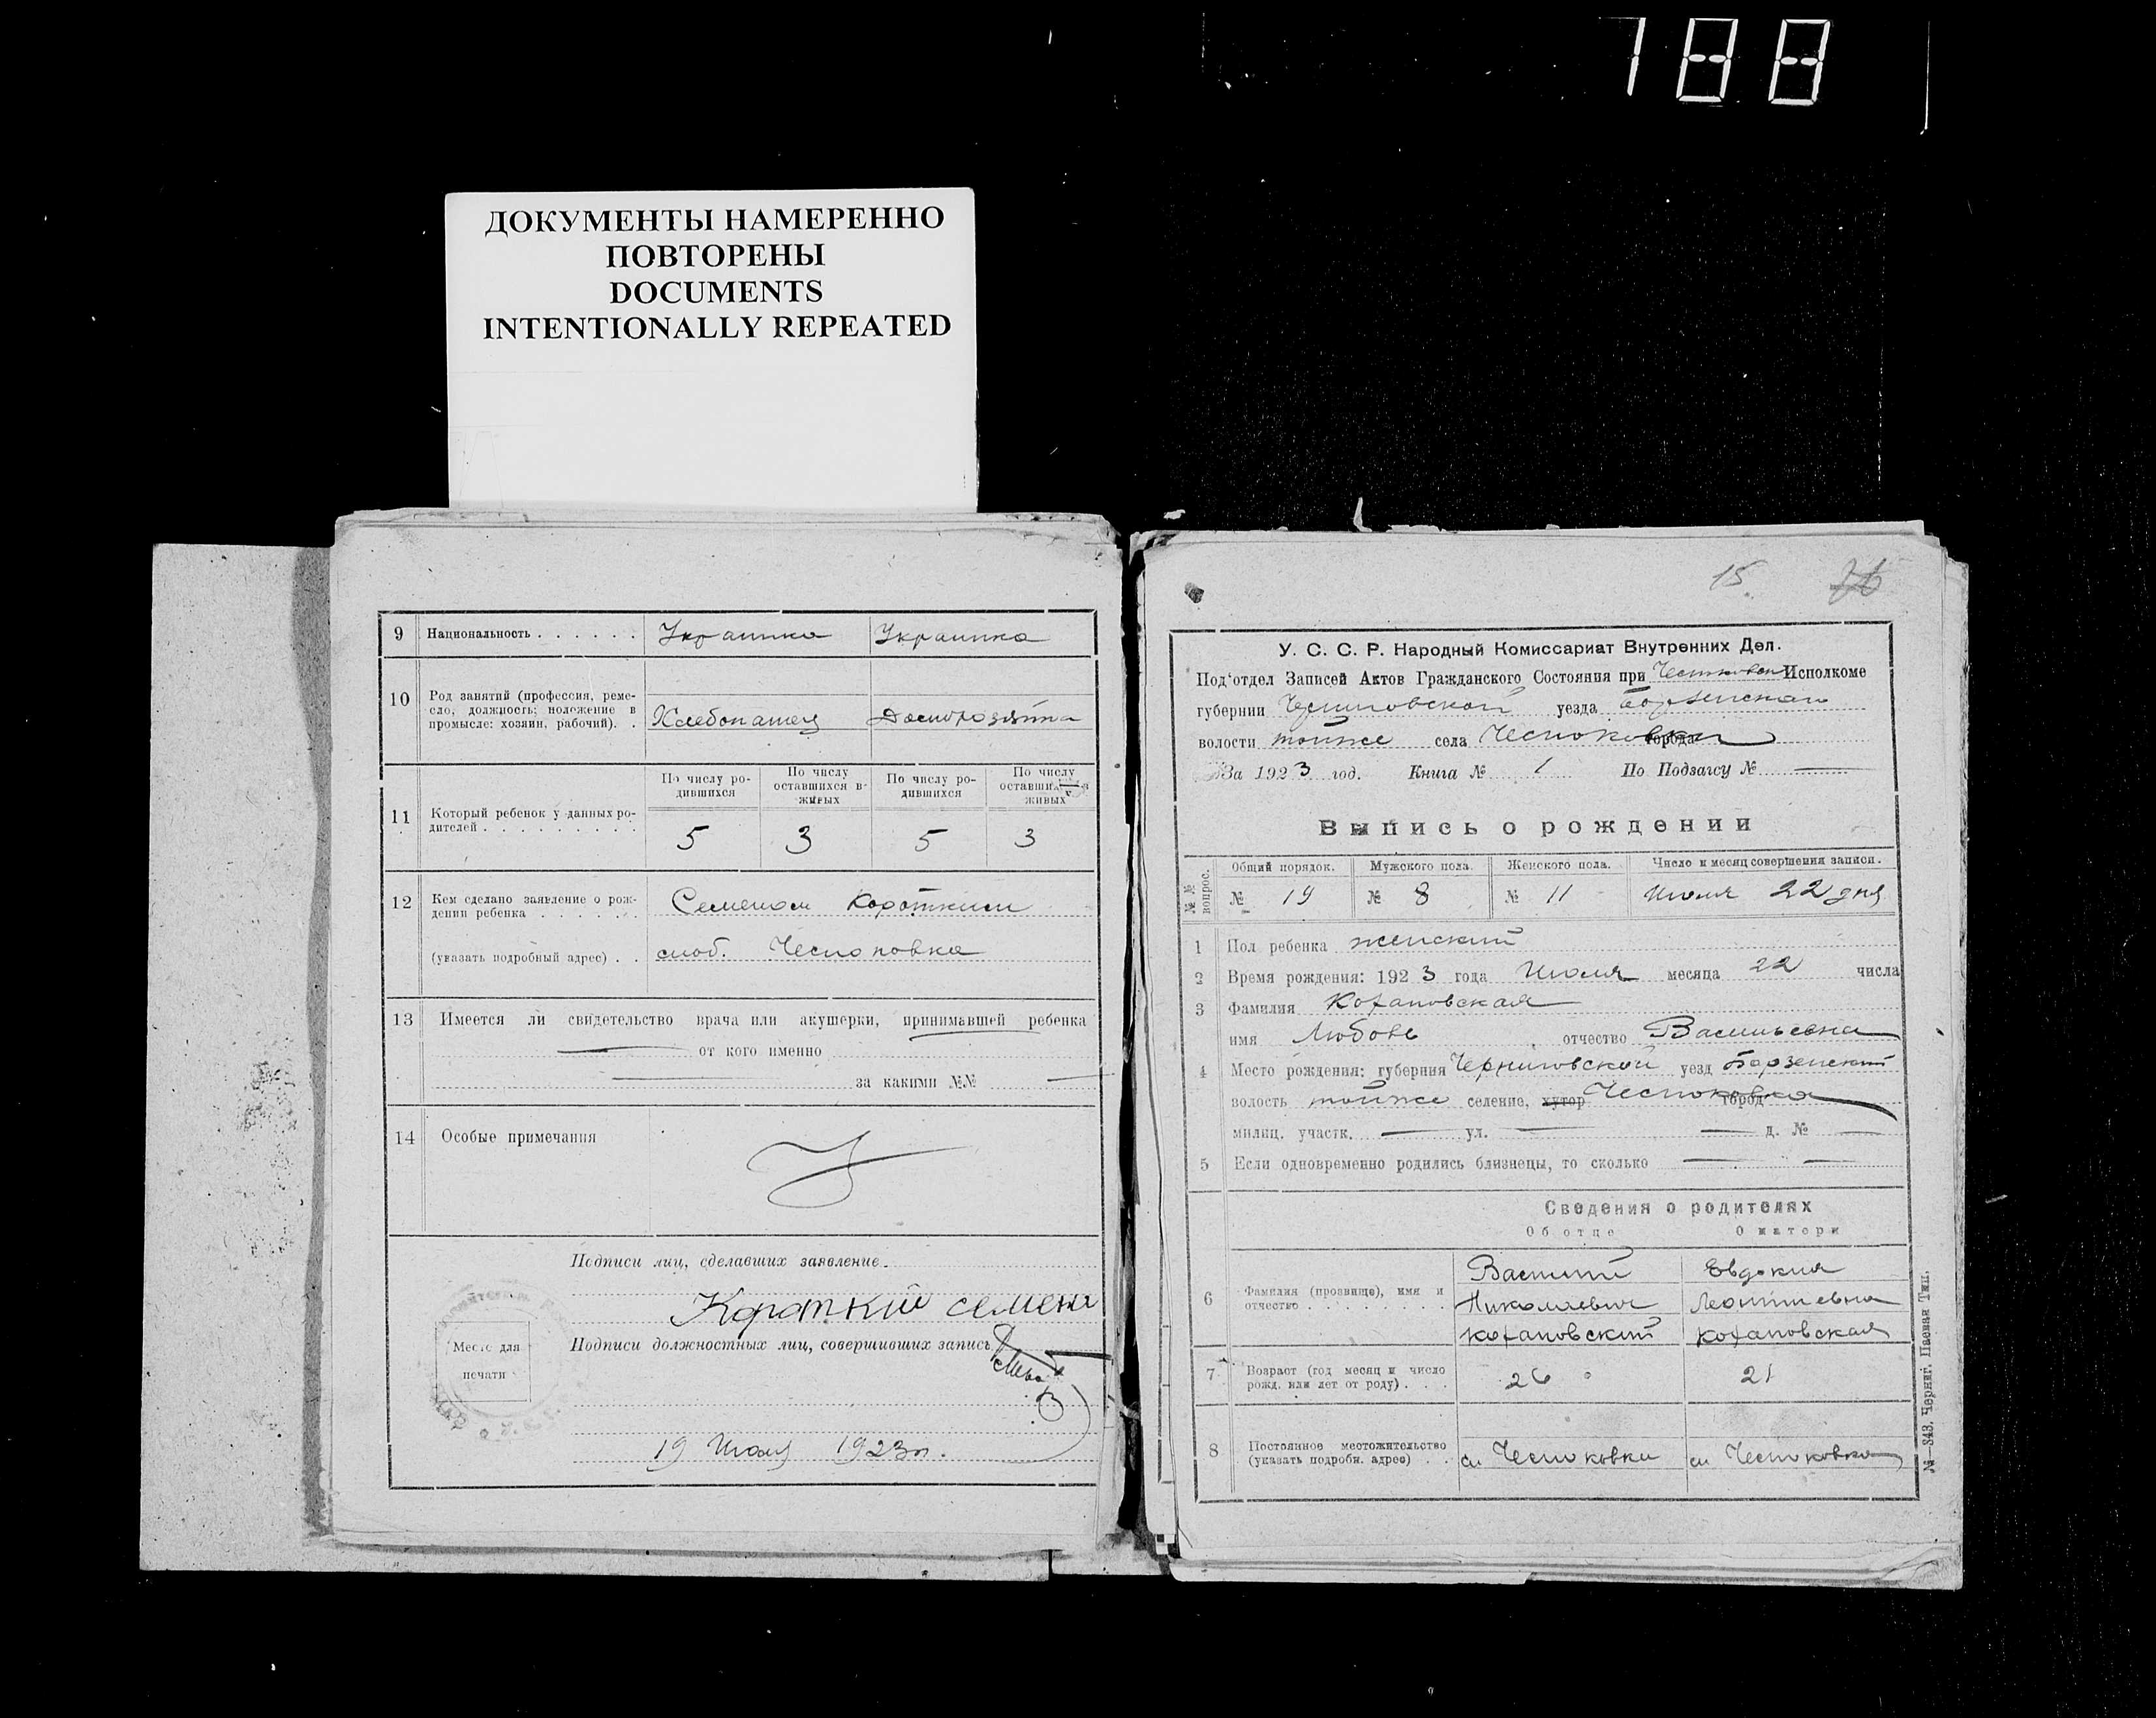 788
ДОКУМЕНТЫ НАМЕРЕННО
ПОВТОРЕНЫ
DOCUMENTS
INTENTIONALLY REPEATED
9 Национальность . . . . . . Украинка Украинка
10 Род занятий (профессия, реме-
сло, должность; положение в
промысле: хозяин, рабочий). . Хлебопашец
11 Который ребенок у данных ро-
дителей . . . . . . . . .
По числу ро-
дившихся
По числу
оставшихся в
живых
По числу ро-
дившихся
По числу
оставшихся
живых
5 3 5 3
12 Кем сделано заявление о рож-
дении ребенка . . . . . . Семеном Коротким
(указать подробный адрес) . . слоб. Чесноковка
13 Имеется ли свидетельство врача или акушерки, принимавшей ребенка
от кого именно
за какими №№
14 Особые примечания
Подписи лиц, сделавших заявление.
Короткий Семена
Подписи должностных лиц, совершивших запись
Место для
печати
19 Июля 1923 г.
15. 26
У. С. С. Р. Народный Комиссариат Внутренних Дел.
Под'отдел Записей Актов Гражданского Состояния при Исполкоме
губернии Черниговской уезда Борзенского
волости тойже села города Чесноковки
За 1923 год. Книга № 1 По Подзагсу №
Выпись о рождении
№№ вопрос.
Общий порядок. Мужского пола. Женского пола. Число и месяц совершения записи.
№ 19 № 8 № 11 Июля 22 дня
1 Пол ребенка женский
2 Время рождения: 1923 года Июля месяца 22 числа
3 Фамилия Кохановская
имя Любовь отчество Васильевна
4 Место рождения: губерния Черниговской уезд Борзенский
волость тойже селение, хутор город Чесноковка
милиц. участк. ул. д. №
5 Если одновременно родились близнецы, то сколько
Сведения о родителях
Об отце О матери
6 Фамилия (прозвище), имя и
отчество . . . . . . . .
Василий Евдокия
Николаевич Леонтиевна
Кохановский Кохановская
7 Возраст (год месяц и число
рожд. или лет от роду) . . . 26 21
8 Постоянное местожительство
(указать подробн. адрес) . . сл Чесноковка сл Чесноковка
№—343. Черниг. Паевая Тип.